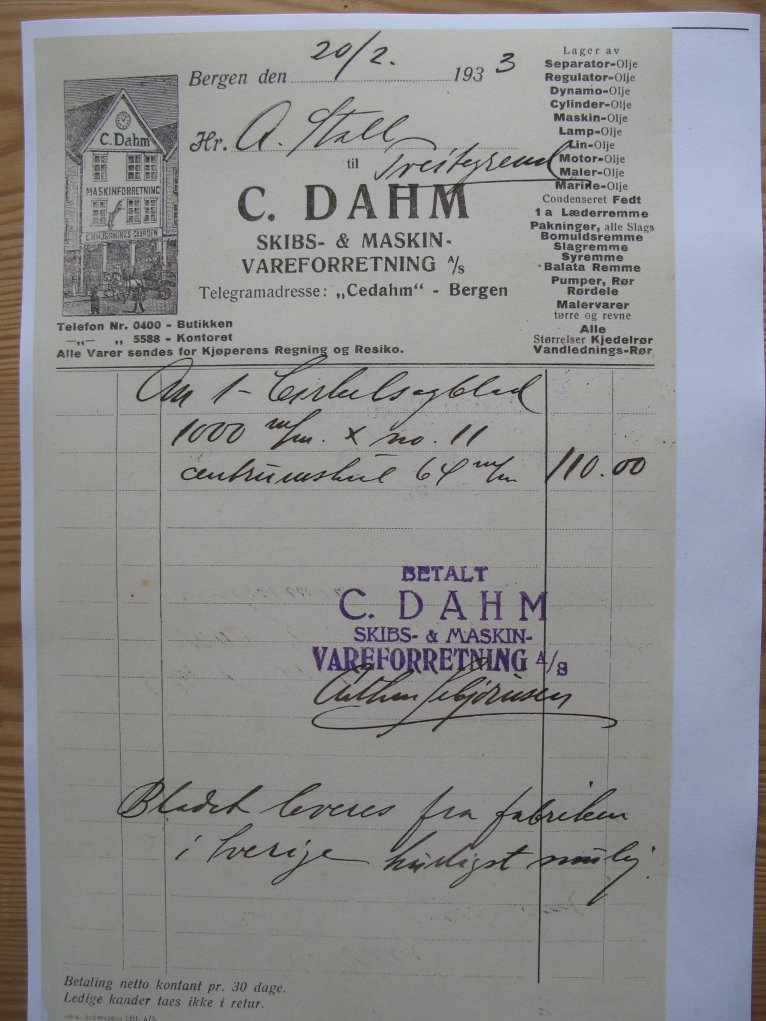 20/2.
Bergen den 193 3
Hr. A. Stall
til
C. DAHM
SKIBS- & MASKIN-
VAREFORRETNING A/S
Telegramadresse: „Cedahm" - Bergen
C. Dahm
MASKINFORRETNING
ENHJØRNINGSGAARDEN
Telefon Nr. 0400 - Butikken
—„— „ 5588 - Kontoret
Alle Varer sendes for Kjøperens Regning og Resiko.
Lager av
Separator-Olje
Regulator-Olje
Dynamo-Olje
Cylinder-Olje
Maskin-Olje
Lamp-Olje
Lin-Olje
Motor-Olje
Maler-Olje
Marine-Olje
Condenseret Fedt
1 a Læderremme
Pakninger, alle Slags
Bomuldsremme
Slagremme
Syremme
Balata Remme
Pumper, Rør
Rørdele
Malervarer
tørre og revne
Alle
Størrelser Kjedelrør
Vandlednings-Rør
An 1 - Cirkelsagblad
1000 m/m. x no. 11
centrumshul 64 m/m 110.00
BETALT
C. DAHM
SKIBS- & MASKIN-
VAREFORRETNING A/S
Bladet leveres fra fabriken
i Sverige hurtigst mulig.
Betaling netto kontant pr. 30 dage.
Ledige kander taes ikke i retur.